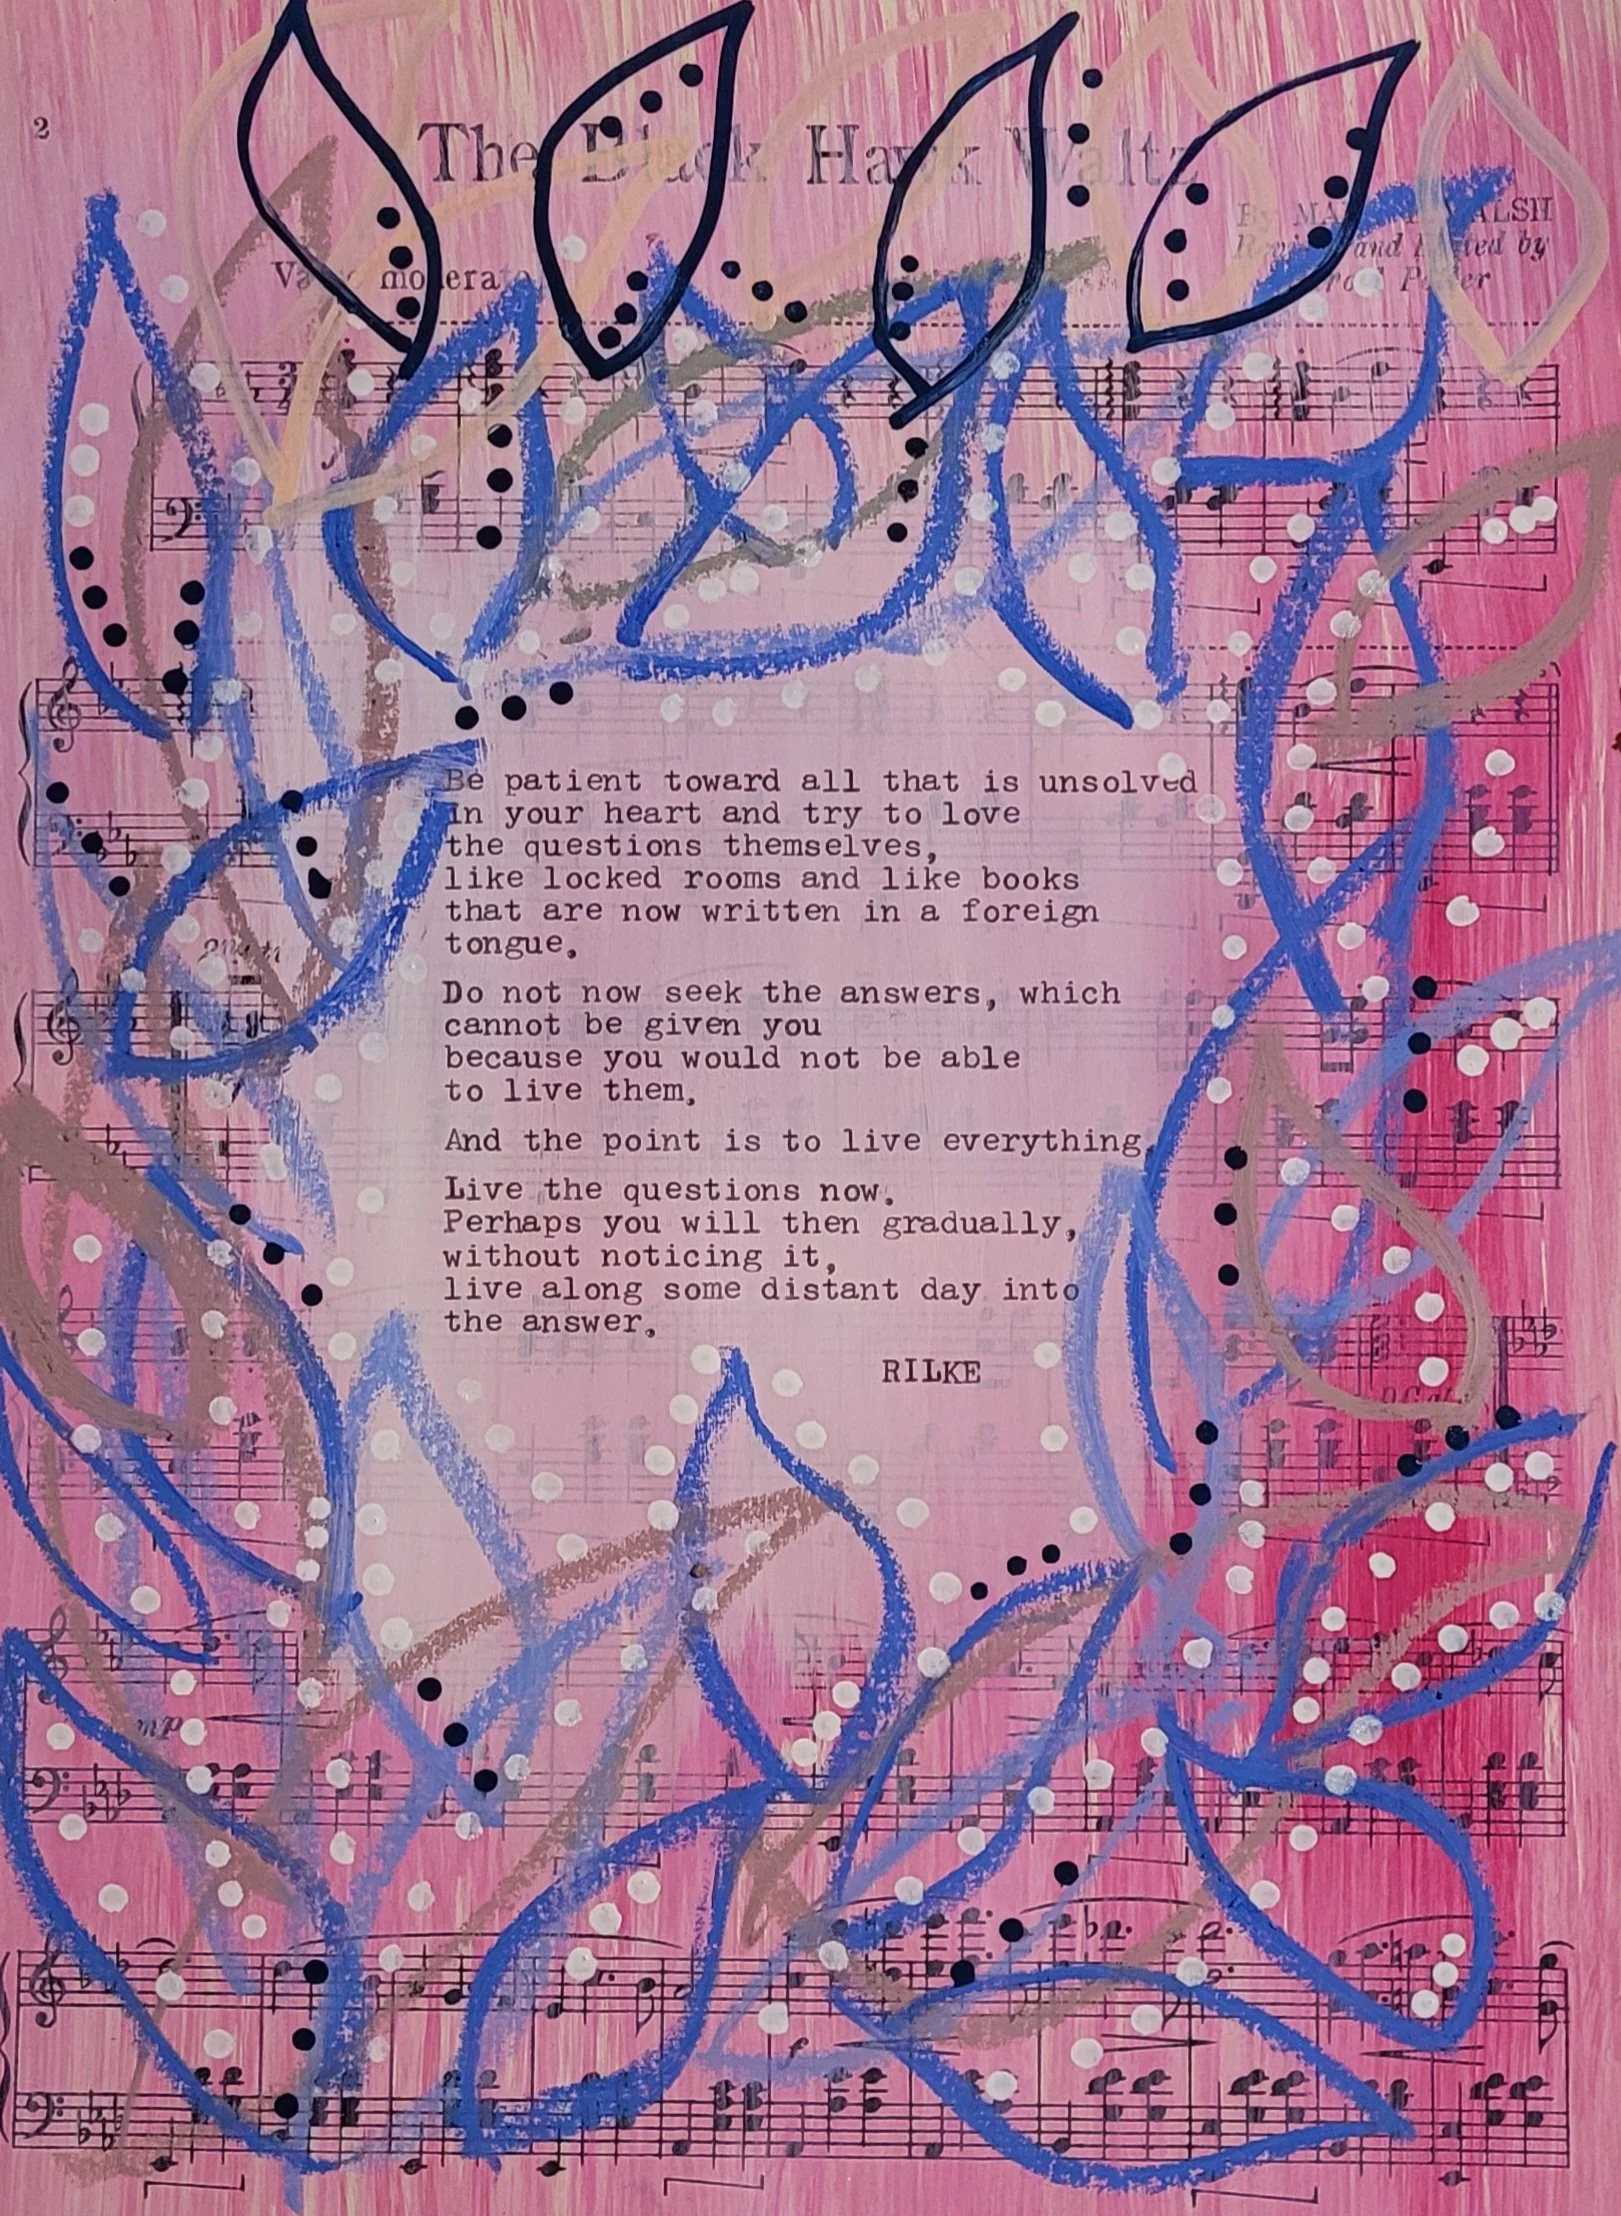 2
The Black Hawk Waltz
By MARY E. WALSH
Revised and Edited by
Valse moderato
Be patient toward all that is unsolved
in your heart and try to love
the questions themselves,
like locked rooms and like books
that are now written in a foreign
tongue.
Do not now seek the answers, which
cannot be given you
because you would not be able
to live them.
And the point is to live everything.
Live the questions now.
Perhaps you will then gradually,
without noticing it,
live along some distant day into
the answer.
RILKE
mp
f